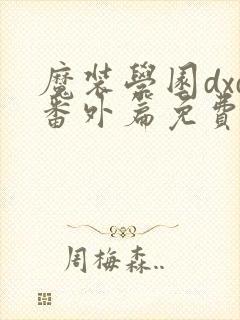 魔装學園dxd
番外扁免費
周梅森..